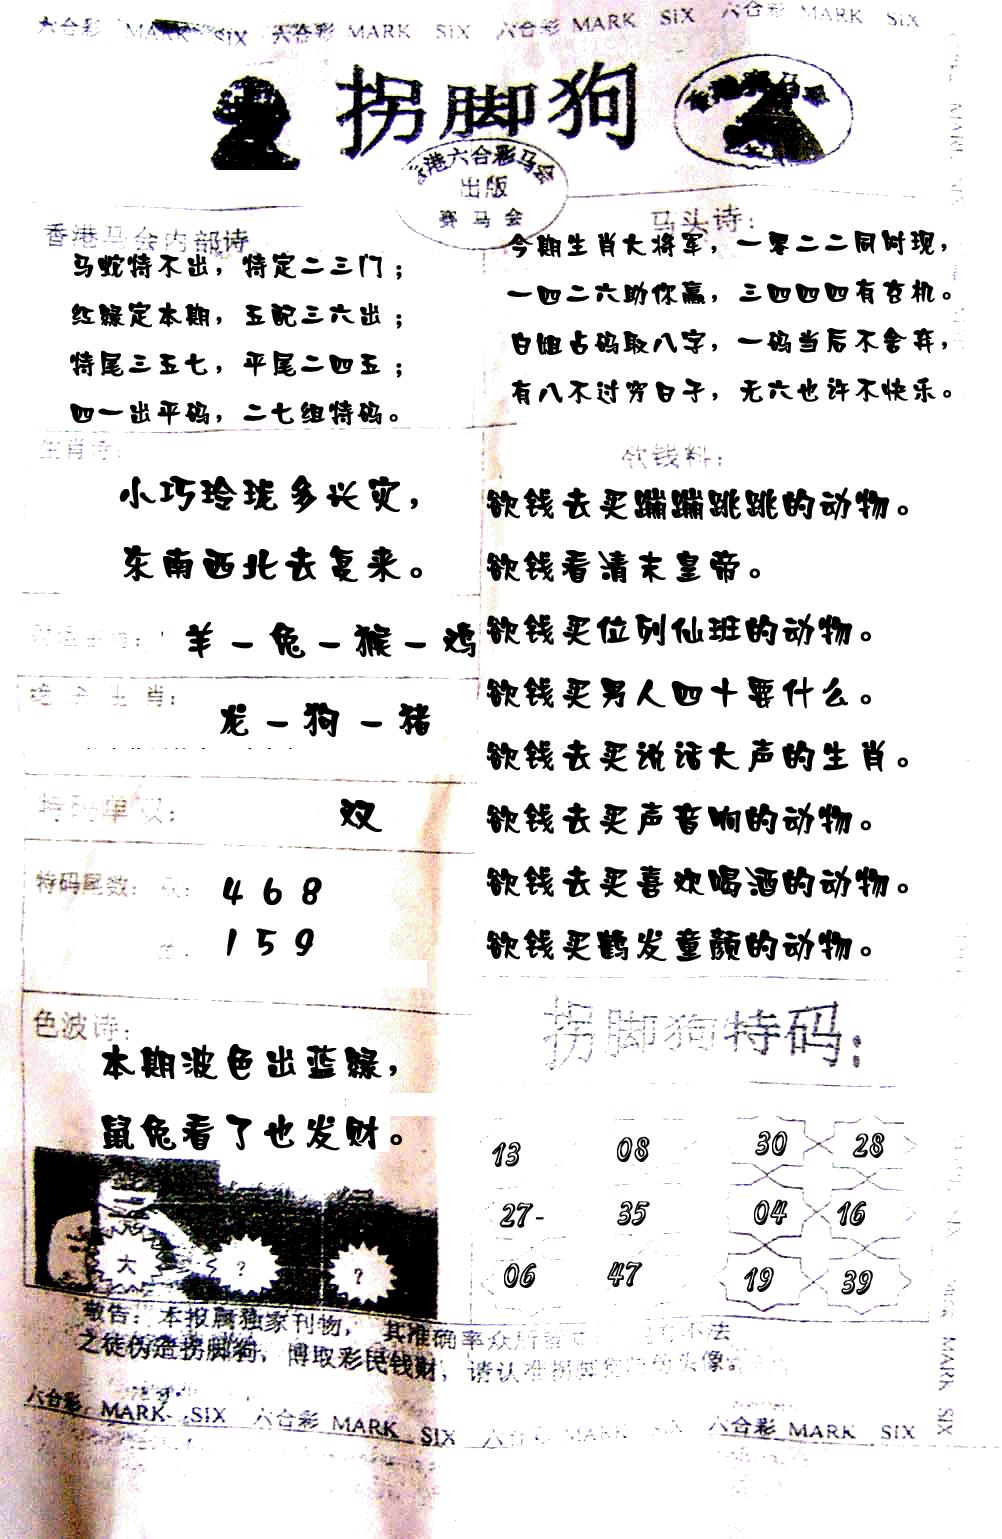 六合彩 MARK SIX 六合彩 MARK SIX 六合彩 MARK SIX 六合彩 MARK SIX
拐脚狗
港六合彩马会
出版
赛马会
香港马会内部诗
马蛇特不出，特定二三门；
红绿定本期，五配三六出；
特尾三五七，平尾二四五；
四一出平码，二七组特码。
马头诗：
今期生肖大将军，一零二二同时现，
一四二六助你赢，三四四四有玄机。
白姐占码取八字，一码当后不舍弃，
有八不过穷日子，无六也许不快乐。
生肖诗：
小巧玲珑多兴灾，
东南西北去复来。
羊－兔－猴－鸡
生肖：
龙－狗－猪
特码单双：
双
特码尾数：
4 6 8
1 5 9
色波诗：
本期波色出蓝绿，
鼠兔看了也发财。
大 ? ?
欲钱料：
欲钱去买蹦蹦跳跳的动物。
欲钱看清末皇帝。
欲钱买位列仙班的动物。
欲钱买男人四十要什么。
欲钱去买说话大声的生肖。
欲钱去买声音响的动物。
欲钱去买喜欢喝酒的动物。
欲钱买鹤发童颜的动物。
拐脚狗特码：
13 08 30 28
27- 35 04 16
06 47 19 39
敬告：本报属独家刊物，其准确率众所皆 不法
之徒伪造拐脚狗，博取彩民钱财，请认准拐脚狗 头像。
六合彩 MARK SIX 六合彩 MARK SIX 六合彩 MARK SIX 六合彩 MARK SIX
MARK SIX